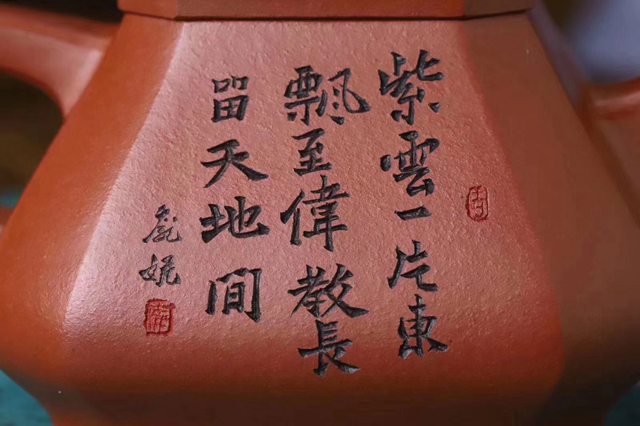 紫雲一片東
飄至偉教長
留天地間